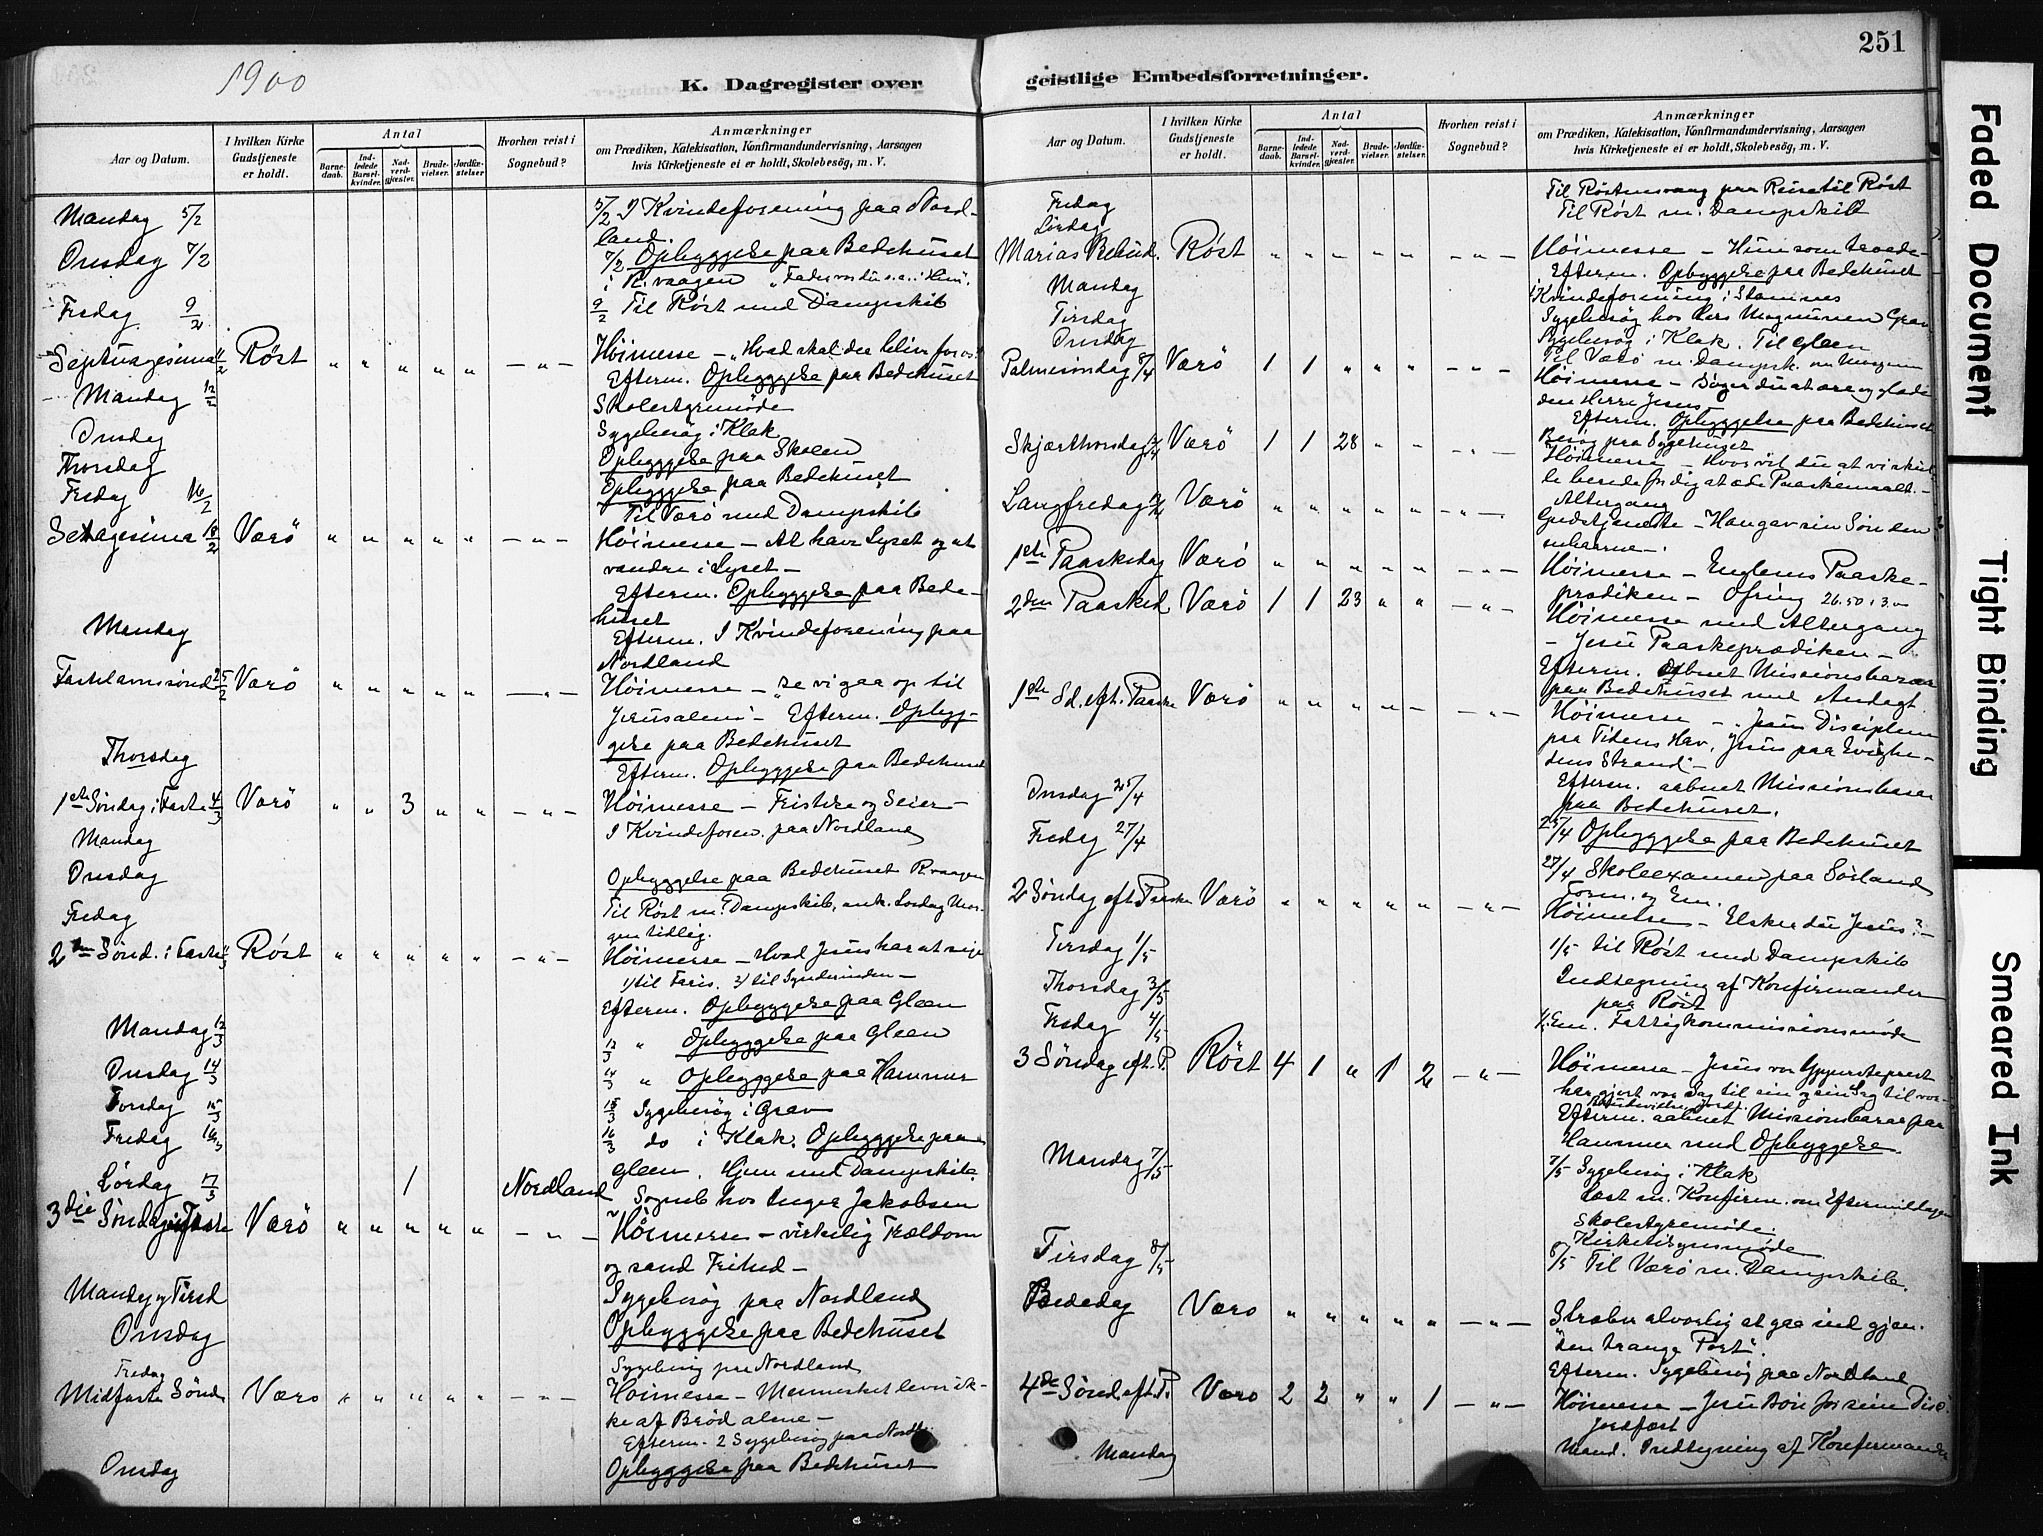 251
1900
K. Dagregister over
geistlige Embedsforretninger.
Aar og Datum.
I hvilken Kirke Gudstjeneste er holdt.
Antal
Barnedaab.
Indledede Barselkvinder.
Nadverdgjæster.
Brudevielser.
Jordfæstelser
Hvorhen reist i Sognebud?
Anmærkninger
om Prædiken, Katekisation, Konfirmandundervisning, Aarsagen
hvis Kirketjeneste ei er holdt, Skolebesøg, m. V.
Mandag 5/2
5/2 I Kvindeforening paa Nord-
land.
Onsdag 7/2
7/2 Opbyggelse paa Bedehuset
i R.vaagen
Fredag 9/2
9/2 Til Røst med Dampskib
Septuagesima 11/2 Røst " " " " " — " —
Høimesse — "Hvad skal der blive for os
Efterm. Opbyggelse paa Bedehuset
Mandag 12/2
Skolestyremøde
Onsdag
Sygebesøg i Klak
Thorsdag
Opbyggelse paa Skolen
Fredag 16/2
Opbyggelse paa Bedehuset
Til Værø med Dampskib
Sexagesima 18/2 Værö " " " " " — " —
Høimesse — At have Lyset og at
vandre i Lyset —
Efterm. Opbyggelse paa Bede-
huset
Mandag
Efterm. I Kvindeforening paa
Nordland
Fastelavnssønd 25/2 Værö " " " " " — " —
Høimesse — "Se vi gaa op til
Jerusalem" — Efterm. Opbyg-
gelse paa Bedehuset
Thorsdag
Efterm. Opbyggelse paa Bedehuset
1ste Søndag i Faste 4/3 Værö " " 3 " " — " —
Høimesse — Fristelse og Seier —
Mandag
I Kvindeforen. paa Nordland
Onsdag
Opbyggelse paa Bedehuset R.vaagen
Fredag
Til Røst m. Dampskib, ank. Lørdag Mor-
gen tidlig.
2den Sønd. i Faste 11/3 Røst " " " " " — " —
Høimesse — Hvad Jesus har at sige
1) til Faris. 2) til Synderinden —
Efterm. Opbyggelse paa Gleen
Mandag 12/3
12/3 " Opbyggelse paa Gleen
Onsdag 14/3
14/3 " Opbyggelse paa Hammer
Torsdag 15/3
15/3 Sygebesøg i Grav
Fredag 16/3
16/3 do i Klak. Opbyggelse paa
Gleen. Hjem med Dampskib.
Lørdag 17/3 1 Nordland
Sogneb hos Inger Jakobsen
3die Søndag i Faste Værö " " " " " — " —
Høimesse — virkelig Trældom
og sand Frihed —
Mandag og Tirsd
Sygebesøg paa Nordland
Onsdag
Opbyggelse paa Bedehuset
Fredag
Sygebesøg paa Nordland
Midfaste Sønd Værö " " " " " — " —
Høimesse — Mennesket lever ik-
ke af Brød alene —
Efterm. 2 Sygebesøg paa Nordl.
Onsdag
Opbyggelse paa Bedehuset
Aar og Datum.
I hvilken Kirke Gudstjeneste er holdt.
Antal
Barnedaab.
Indledede Barselkvinder.
Nadverdgjæster.
Brudevielser.
Jordfæstelser.
Hvorhen reist i Sognebud?
Anmærkninger
om Prædiken, Katekisation, Konfirmandundervisning, Aarsagen
hvis Kirketjeneste ei er holdt, Skolebesøg, m. V.
Fredag
paa Reise til Røst
Lørdag
Til Røst m. Dampskib
Marias Bebud. Røst " " " " " — " —
Høimesse — Hun som troede —
Efterm. Opbyggelse paa Bedehuset
Mandag
Kvindeforening i Stamnes
Tirsdag
Sygebesøg hos Lars Magnussen Grav
Onsdag
Sygebesøg i Klak. Til Gleen
Til Værö m. Dampsk. om Morgenen
Palmesøndag 8/4 Værö 1 1 " " " — " —
Høimesse —
den Herre Jesus
Efterm. Opbyggelse paa Bedehuset
Besøg paa Sygehuset
Skjærthorsdag 12/4 Værö 1 1 28 " " — " —
Høimesse — Hvor vil du at vi skul-
le berede for dig at æde Paaskemaalt. —
Altergang
Langfredag 13/4 Værö " " " " " — " —
Gudstjeneste — Han gav sin Søn den
enbaarne —
1ste Paaskedag Værö " " " " " — " —
Høimesse — Englenes Paaske-
prædiken — Ofring 26.50
2den Paasked Værö 1 1 23 " " — " —
Høimesse med Altergang
— Jesu Paaskeprædiken —
Efterm. aabnet Missionsbasar
paa Bedehuset med Andagt
1ste Sd. eft. Paaske Værö " " " " — " —
Høimesse — "Jesu Disciplene
paa Tidens Hav, Jesus paa Evighe-
dens Strand" —
Efterm. aabnet Missionsbasar
paa Bedehuset.
Onsdag 25/4
25/4 Opbyggelse paa Bedehuset
Fredag 27/4
27/4 Skoleexamen paa Sørland
Form. og Em.
2 Søndag eft. Paaske Værö " " " " " — " —
Høimesse — Elsker du Jesus? —
Tirsdag 1/5
1/5 til Røst med Dampskib
Thorsdag 3/5
Indtegning af Konfirmander
paa Røst
Fredag 4/5
Em. Fattigkommissionsmøde
3 Søndag eft. P. Røst 4 1 " 1 2 — " —
Høimesse — Jesus vor Ypperstepræst
har gjort vor Sag til sin og sin Sag til vor —
Efterm. aabnet Missionsbasar paa
Hammer med Opbyggelse.
Mandag 7/5
7/5 Sygebesøg i Klak
Læst m. Konfirm. om Eftermiddagen
Skolestyremøde.
Kirketilsynsmøde
Tirsdag 8/5
8/5 Til Værö m. Dampskib.
Bededag Værö " " " " " — " —
Stræber alvorlig at gaa ind gjen.
"den trange Port".
Efterm. Sygebesøg paa Nordland
4de Sønd. eft. P. Værö 2 2 " " 1 — " —
Høimesse — Jesu Bøn for sine Disc.
Jordfæst
Mandag
Mand. Indtegning af Konfirmander
Faded Document
Tight Binding
Smeared Ink